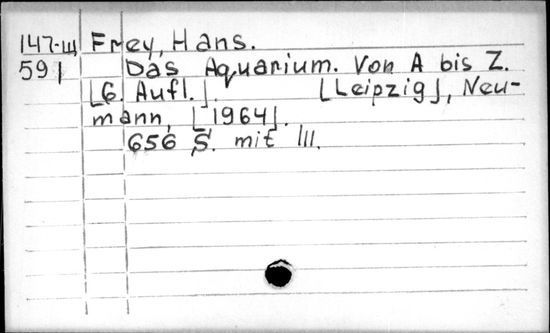 147-Ш Frey, Hans.
591 Das Aquarium. Von A bis Z.
[6. Aufl.]. [Leipzig], Neu-
mann, [1964].
656 S. mit Ill.